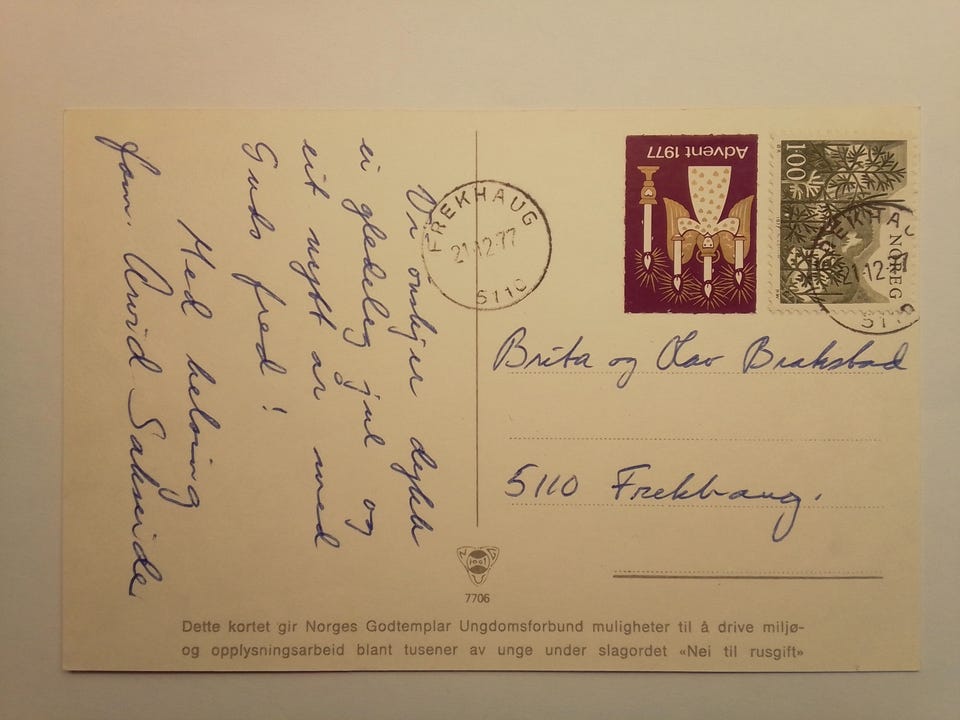 Vi önskjer dykk
ei gledeleg jul og
eit nytt år med
Guds fred!
Med helsing
fam. Arvid Sakseide
FREKHAUG
21.12.77
5110
Advent 1977
1.00
NOREG
FREKHAUG
21.12.77
511
Brita og Olav Brakstad
5110 Frekhaug.
N G U
7706
Dette kortet gir Norges Godtemplar Ungdomsforbund muligheter til å drive miljø-
og opplysningsarbeid blant tusener av unge under slagordet «Nei til rusgift»